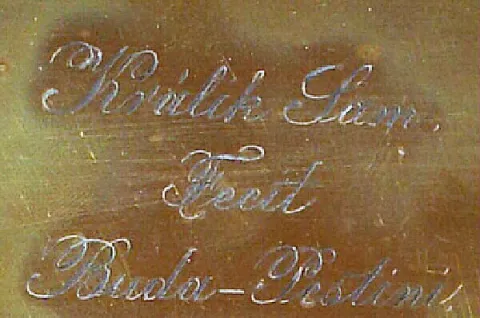 Králik Sam.
Fecit
Buda-Pestini.